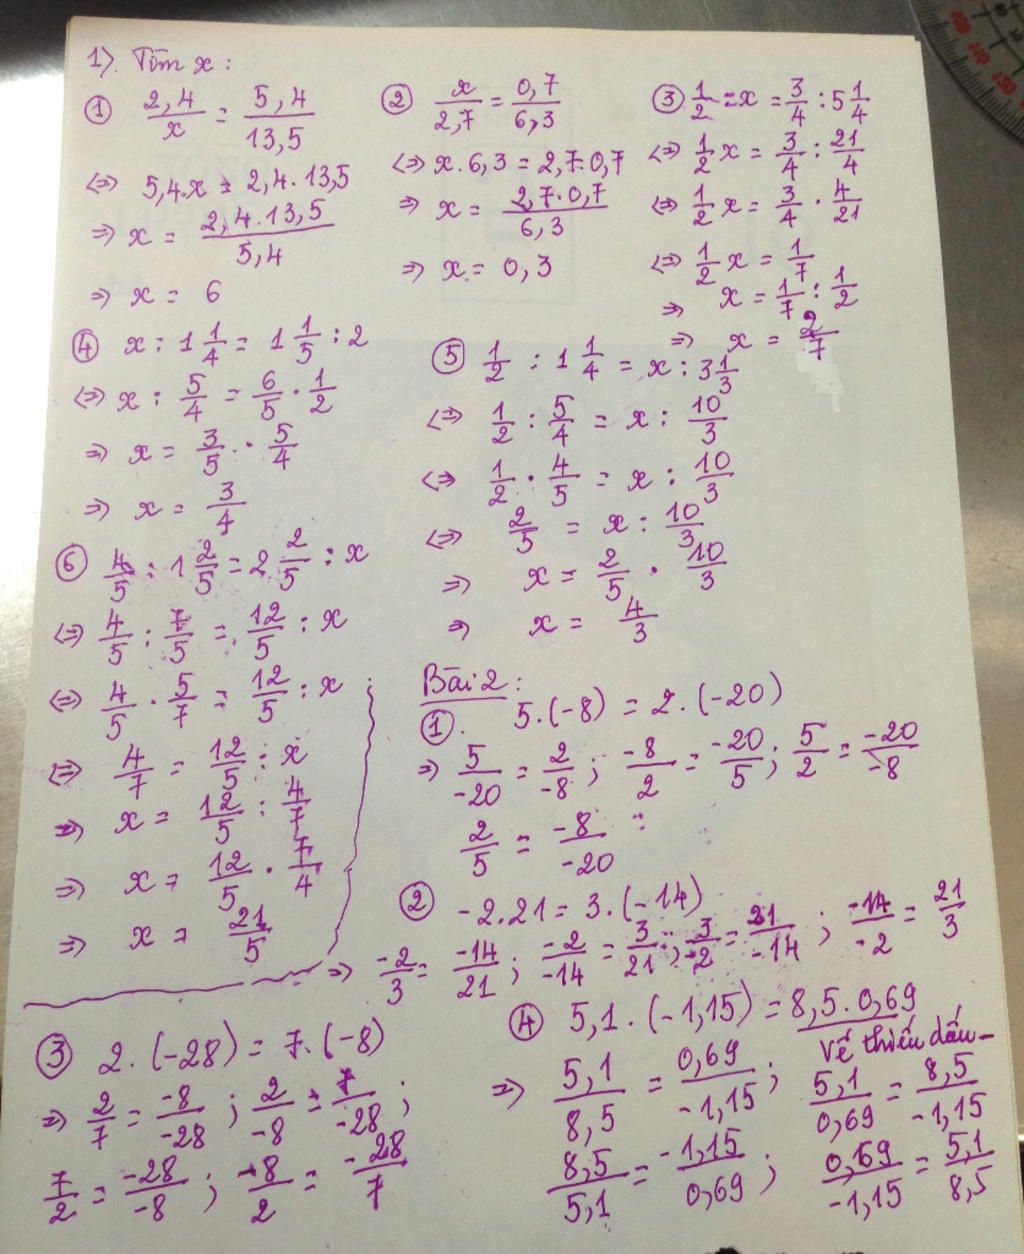 1). Tìm x :
① 2,4/x = 5,4/13,5
<=> 5,4.x = 2,4.13,5
=> x = 2,4.13,5/5,4
=> x = 6
② x/2,7 = 0,7/6,3
<=> x.6,3 = 2,7.0,7
=> x = 2,7.0,7/6,3
=> x = 0,3
③ 1/2 x = 3/4 : 5 1/4
<=> 1/2 x = 3/4 : 21/4
<=> 1/2 x = 3/4 . 4/21
<=> 1/2 x = 1/7
=> x = 1/7 : 1/2
=> x = 2/7
④ x : 1 1/4 = 1 1/5 : 2
<=> x : 5/4 = 6/5 . 1/2
=> x = 3/5 . 5/4
=> x = 3/4
⑤ 1/2 : 1 1/4 = x : 3 1/3
<=> 1/2 : 5/4 = x : 10/3
<=> 1/2 . 4/5 = x : 10/3
<=> 2/5 = x : 10/3
=> x = 2/5 . 10/3
=> x = 4/3
⑥ 4/5 : 1 2/5 = 2 2/5 : x
<=> 4/5 : 7/5 = 12/5 : x
<=> 4/5 . 5/7 = 12/5 : x
<=> 4/7 = 12/5 : x
=> x = 12/5 : 4/7
=> x = 12/5 . 7/4
=> x = 21/5
Bài 2 :
① . 5.(-8) = 2.(-20)
=> 5/-20 = 2/-8 ; -8/2 = -20/5 ; 5/2 = -20/-8
2/5 = -8/-20
② -2.21 = 3.(-14)
=> -2/3 = -14/21 ; -2/-14 = 3/21 ; 3/-2 = 21/-14 ; -14/-2 = 21/3
③ 2.(-28) = 7.(-8)
=> 2/7 = -8/-28 ; 2/-8 = 7/-28 ;
7/2 = -28/-8 ; -8/2 = -28/7
④ 5,1.(-1,15) = 8,5.0,69
Vế thiếu dấu -
=> 5,1/8,5 = 0,69/-1,15 ; 5,1/0,69 = 8,5/-1,15
8,5/5,1 = -1,15/0,69 ; 0,69/-1,15 = 5,1/8,5